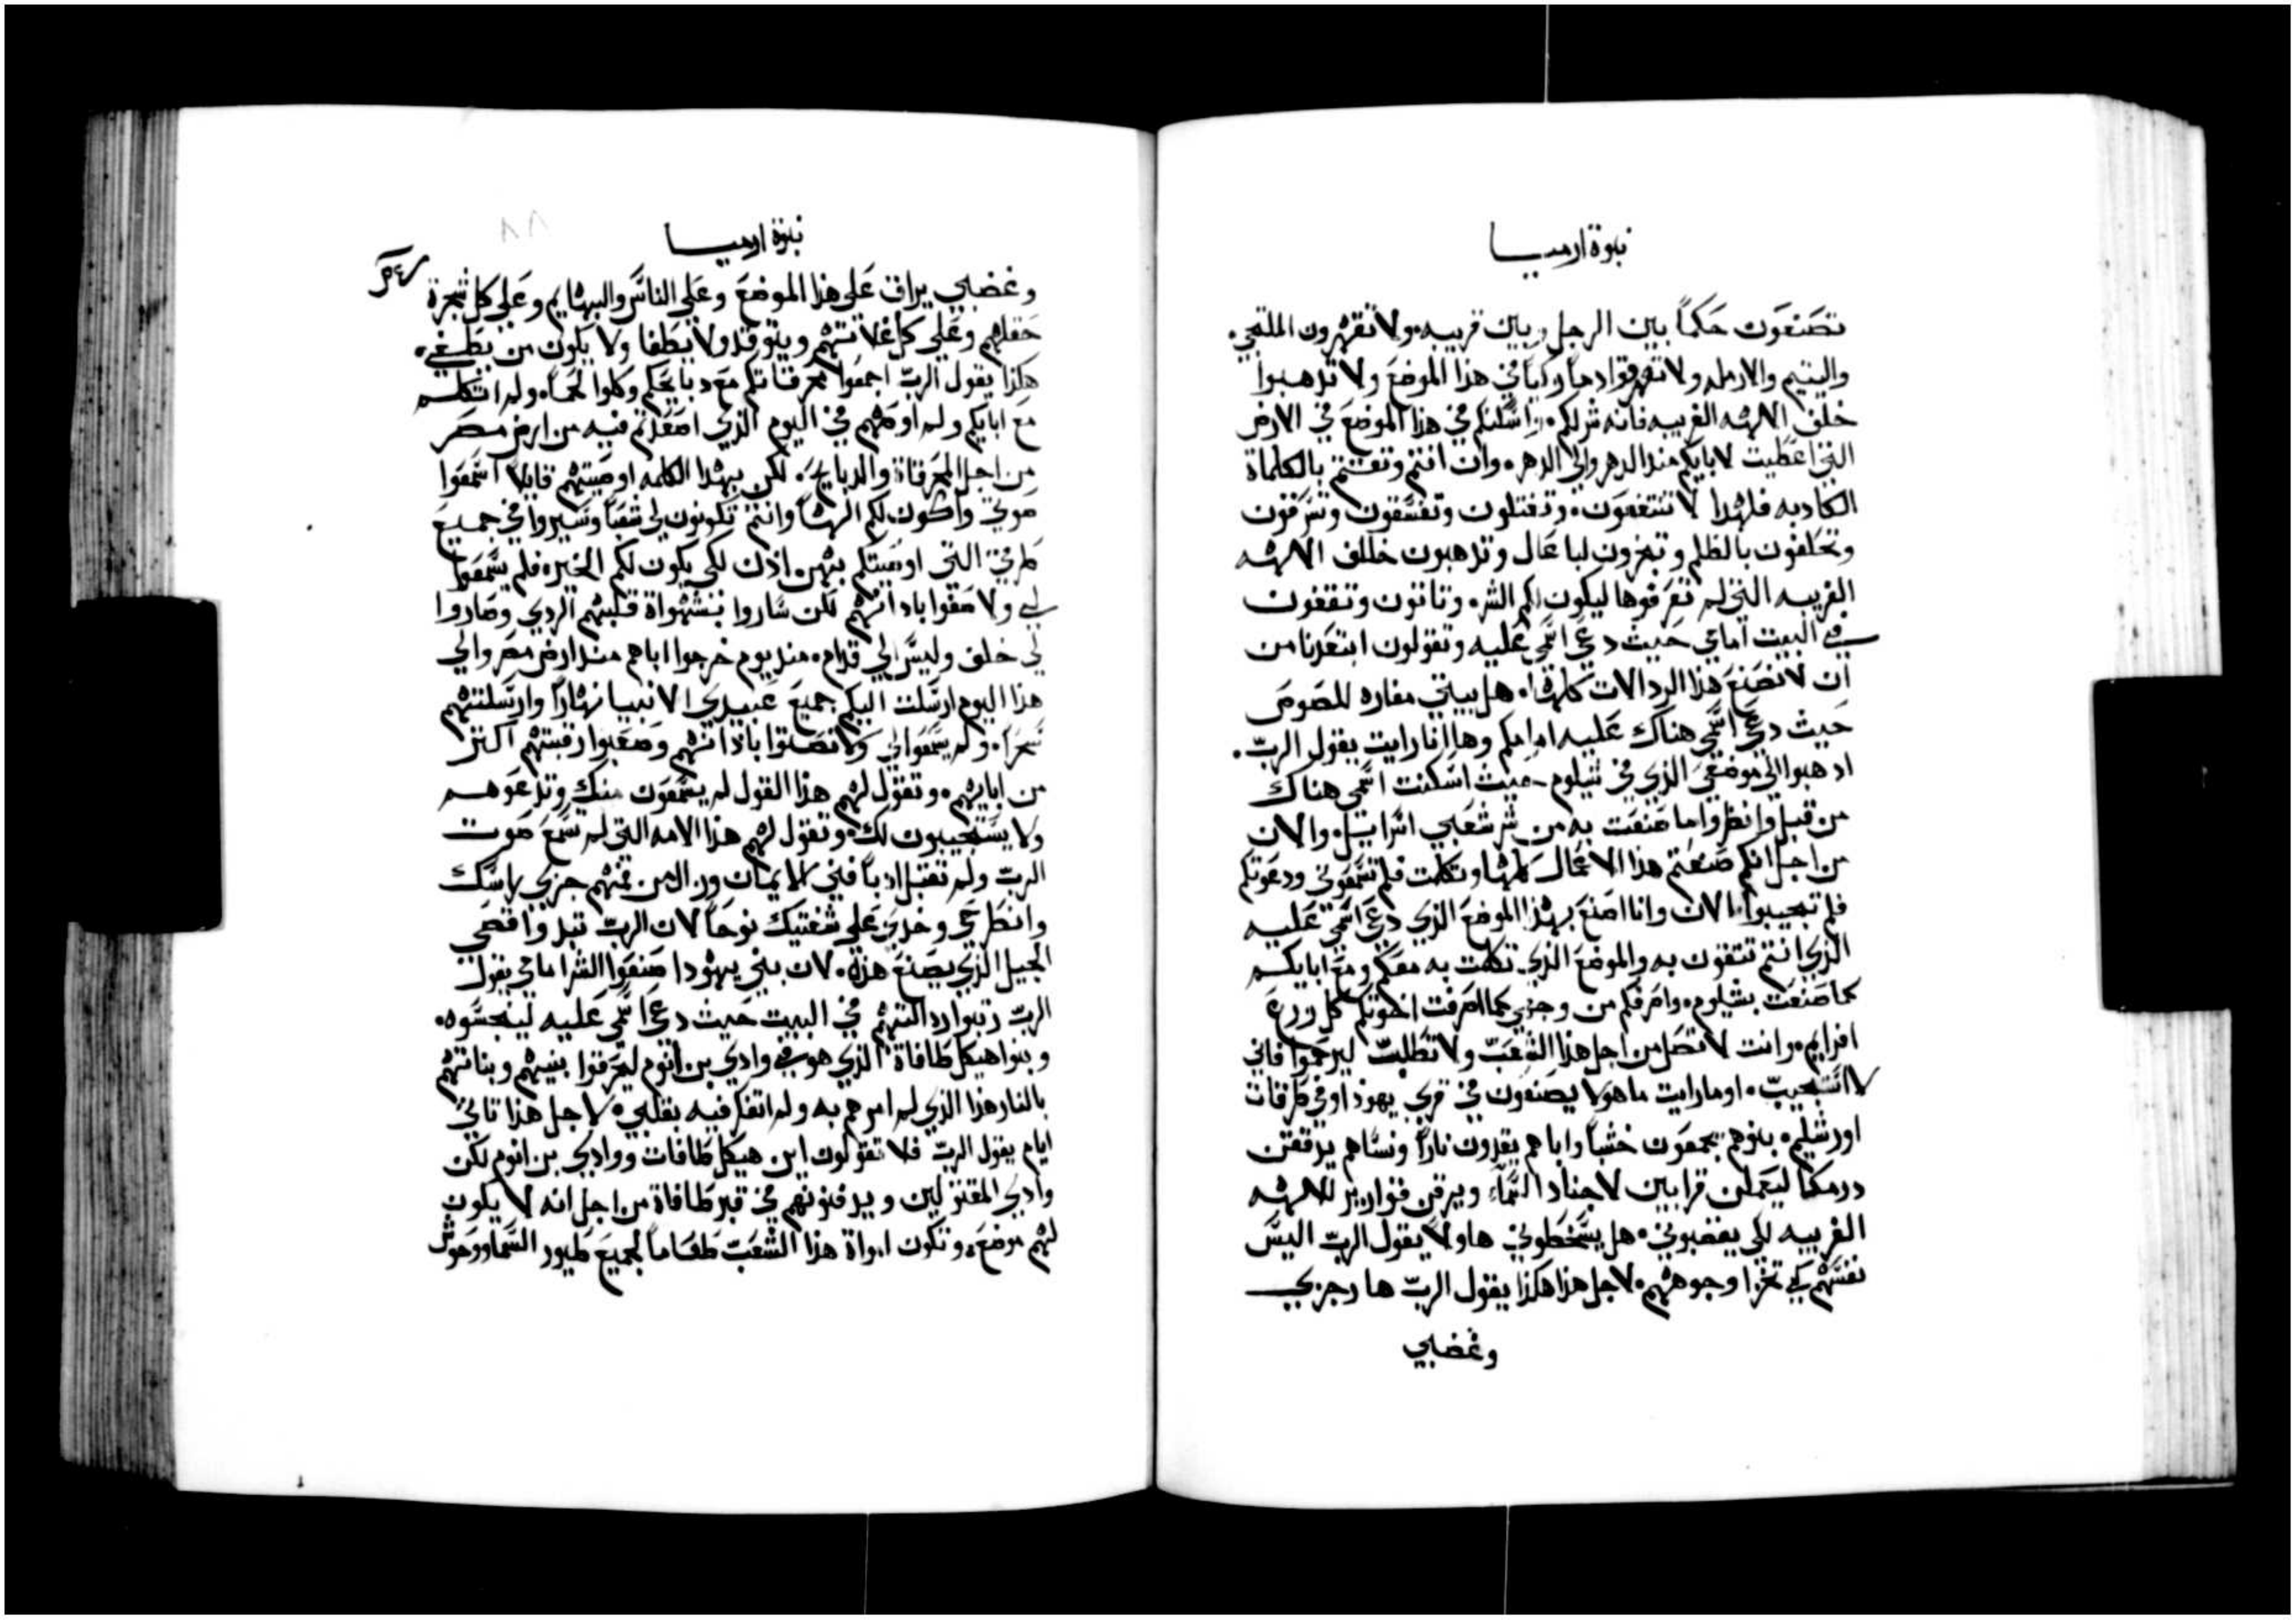 نبوة ارميا
تصنعون حكماً بين الرجل وبين قريبه. ولا تقهرون الملتجي.
واليتيم والارمله ولا تهرقوا دماً زكياً في هذا الموضع ولا تذهبوا
خلف الالهه الغريبه فانه شر لكم. واسكنكم في هذا الموضع في الارض
التي اعطيت لابايكم منذ الدهر والي الدهر. وان انتم وثقتم بالكلماة
الكادبه فلهدا لا تنتفعون. وتقتلون وتفسقون وتسرقون
وتحلفون بالظلم وتبخرون لباعال وتذهبون خلف الالهه
الغريبه التي لم تعرفوها ليكون لكم الشر. وتاتون وتقفون
في البيت امامي حيث دعي اسمي عليه وتقولون ابتعدنا من
ان لا نصنع هذا الردالات كلها. هل بيتي مغاره للصوص
حيث دعي اسمي هناك عليه امامكم وها انا رايت يقول الرب.
ادهبوا الي موضعي الذي في شيلوم حيث اسكنت اسمي هناك
من قبل وانظروا ما صنعت به من شر شعبي اسراييل. والان
من اجل انكم صنعتم هذا الاعمال كلها وتكلمت فلم تسمعوني ودعوتكم
فلم تجيبوا. الان وانا اصنع بهذا الموضع الذي دعي اسمي عليه
الذي انتم تتقون به والموضع الذي تكلمت به معكم ومع ابايكم
كما صنعت بشيلوم. واصرفكم من وجهي كما اصرفت اخوتكم كل زرع
افرايم. وانت لا تصل من اجل هذا الشعب ولا تطلب ليرحموا فاني
لا استجيب. اوما رايت ما هولا يصنعون في قري يهودا وفي طرقات
اورشليم. بنوهم يجمعون خشباً واباهم يقدون ناراً ونساهم يدققن
درمكا ليعملن قرابين لاجناد السماء ويرقن قوارير للالهه
الغريبه لكي يغضبوني. هل يسخطوني هاولا يقول الرب اليس
نفسهم لكي تخزا وجوههم. لاجل هذا هكذا يقول الرب ها رجزي
وغضبي
نبوة ارميا
وغضبي يراق على هذا الموضع وعلي الناس والبهايم وعلي كل شجرة
حقلهم وعلي كل غلاتهم ويتوقد ولا يطفا ولا يكون من يطفي.
هكذا يقول الرب اجمعوا محرقاتكم مع دبايحكم وكلوا لحما. ولم اتكلم
مع ابايكم ولم اوصهم في اليوم الذي اصعدتهم فيه من ارض مصر
من اجل المحرقاة والدبايح. لكن بهذا الكلمه اوصيتهم قايلاً اسمعوا
صوتي واكون لكم الهاً وانتم تكونون لي شعباً وسيروا في جميع
طرقي التي اوصيتكم بهن. اذن لكي يكون لكم الخير. فلم يسمعوا
لي ولا صغوا باداانهم لكن ساروا بشهواة قلبهم الردي وصاروا
لي خلف وليس الي قدام. منذ يوم خرجوا اباهم منذ ارض مصر والي
هذا اليوم ارسلت اليكم جميع عبيدي الانبيا نهاراً وارسلتهم
سحراً. ولم يسمعوا لي ولا تصنتوا باذانهم وصعبوا رقبتهم اكثر
من ابايهم. وتقول لهم هذا القول لم يسمعون منك وتدعوهم
ولا يستجيبون لك. وتقول لهم هذا الامه التي لم تسمع صوت
الرب ولم تقبل ادباً فني الايمان وزال من فمهم جزي راسك
وانطرحي وخذي علي شفتيك نوحاً لان الرب تبذل واقصي
الجيل الذي يصنع هذه. لان بني يهودا صنعوا الشر امامي يقول
الرب رتبوا ردالتهم في البيت حيث دعي اسمي عليه لينجسوه.
وبنوا هيكل طافاة الذي هو في وادي بن انوم ليحرقوا بنيهم وبناتهم
بالنار هذا الذي لم امرهم به ولم اتفكر فيه بقلبي. لاجل هذا تاتي
ايام يقول الرب فلا تقولون ابن هيكل طافات ووادي بن انوم لكن
وادي المقتولين ويدفنونهم في قبر طافاة من اجل انه لا يكون
لهم موضع. وتكون امواة هذا الشعب طعاماً لجميع طيور السما ووحوش